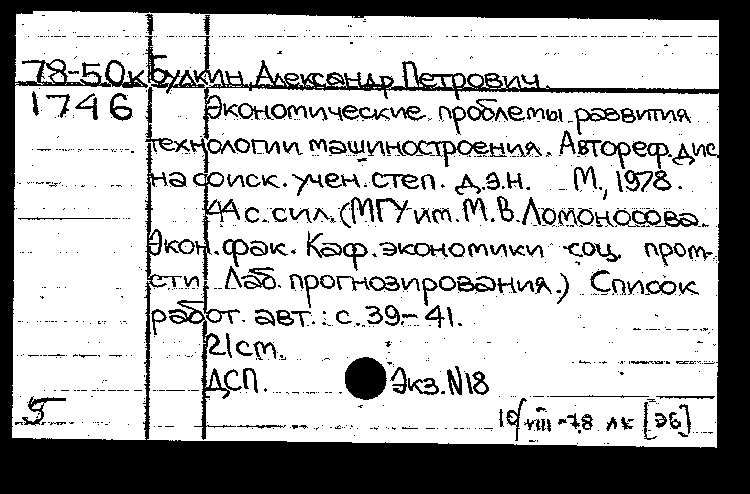 78-50к Булкин, Александр Петрович.
1746 Экономические проблемы развития
технологии машиностроения. Автореф. дис.
на соиск. учен. степ. д.э.н. М., 1978.
44 с. с ил. (МГУ им. М.В. Ломоносова.
Экон. фак. Каф. экономики соц. пром-
сти Лаб. прогнозирования.) Список
работ. авт.: с. 39-41.
21 cm.
ДСП. Экз. N18
5 10/VIII-78 лк [Э6]